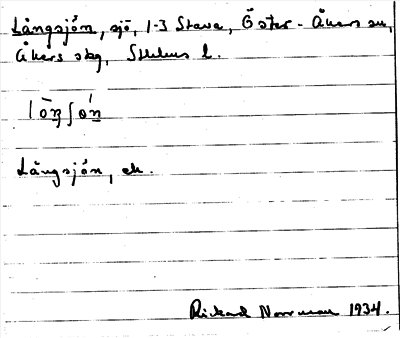 Långsjön, sjö, 1-3 Stava, Öster-Åkers sn,
Åkers skg, Sthlms l.
Långsjön, ek.
Rickard Norrman 1934.